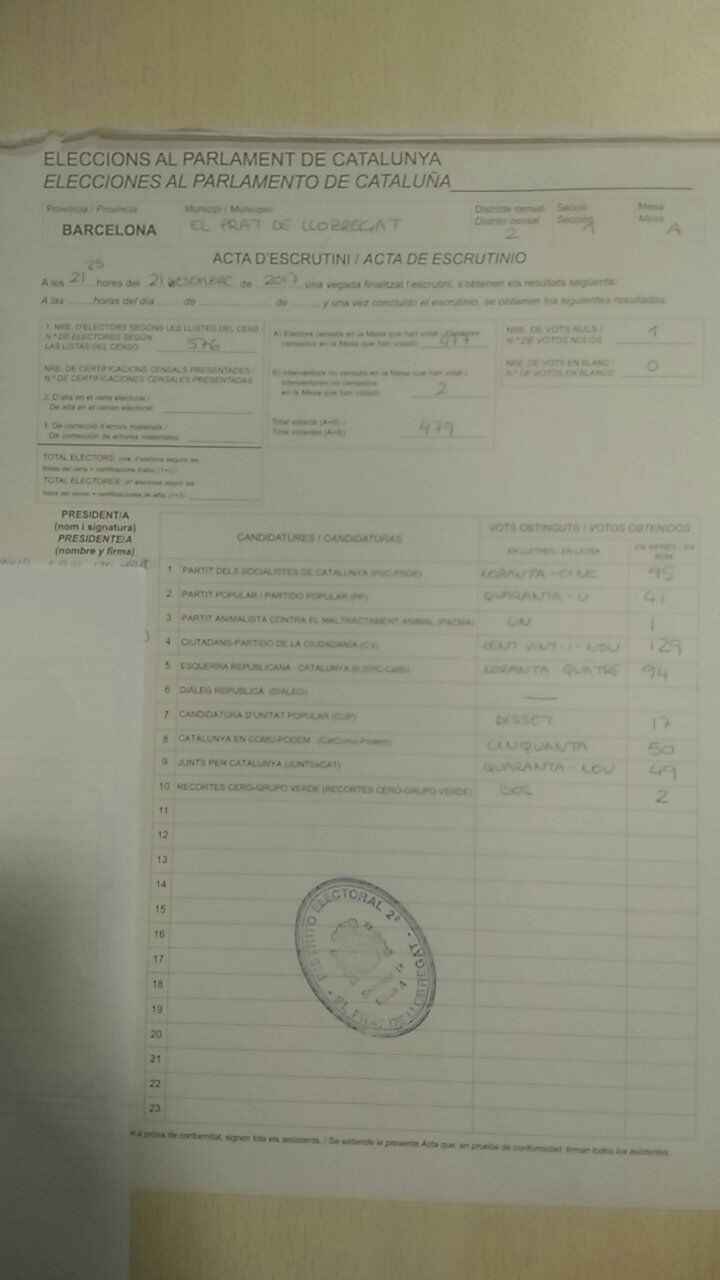 ELECCIONS AL PARLAMENT DE CATALUNYA
ELECCIONES AL PARLAMENTO DE CATALUÑA
Província / Provincia Municipi / Municipio Districte censal Secció Mesa
Distrito censal Sección Mesa
BARCELONA EL PRAT DE LLOBREGAT 2 1 A
ACTA D'ESCRUTINI / ACTA DE ESCRUTINIO
25
A les 21 hores del 21 DESEMBRE de 2017, una vegada finalitzat l'escrutini, s'obtenen els resultats següents:
A las horas del día de de y una vez concluido el escrutinio, se obtienen los siguientes resultados:
1. NRE. D'ELECTORS SEGONS LES LLISTES DEL CENS /
N.º DE ELECTORES SEGÚN
LAS LISTAS DEL CENSO 576
NRE. DE CERTIFICACIONS CENSALS PRESENTADES /
N.º DE CERTIFICACIONES CENSALES PRESENTADAS
2. D'alta en el cens electoral /
De alta en el censo electoral:
3. De correcció d'errors materials /
De corrección de errores materiales:
TOTAL ELECTORS: (nre. d'electors segons les
llistes del cens + certificacions d'alta) (1+2) /
TOTAL ELECTORES: (nº electores según las
listas del censo + certificaciones de alta) (1+2)
A) Electors censats en la Mesa que han votat / Electores
censados en la Mesa que han votado 477
B) Interventors no censats en la Mesa que han votat /
Interventores no censados
en la Mesa que han votado 2
Total votants (A+B) /
Total votantes (A+B) 479
NRE. DE VOTS NULS / 1
N.º DE VOTOS NULOS
NRE. DE VOTS EN BLANC / 0
N.º DE VOTOS EN BLANCO
PRESIDENT/A
(nom i signatura)
PRESIDENTE/A
(nombre y firma)
CANDIDATURES / CANDIDATURAS VOTS OBTINGUTS / VOTOS OBTENIDOS
EN LLETRES / EN LETRA EN XIFRES / EN NÚM.
1 PARTIT DELS SOCIALISTES DE CATALUNYA (PSC-PSOE) NORANTA-CINC 95
2 PARTIT POPULAR / PARTIDO POPULAR (PP) QUARANTA-U 41
3 PARTIT ANIMALISTA CONTRA EL MALTRACTAMENT ANIMAL (PACMA) UN 1
4 CIUTADANS-PARTIDO DE LA CIUDADANÍA (C's) CENT VINT-I-NOU 129
5 ESQUERRA REPUBLICANA - CATALUNYA SÍ (ERC-CatSí) NORANTA-QUATRE 94
6 DIÀLEG REPUBLICÀ (DIÀLEG) —
7 CANDIDATURA D'UNITAT POPULAR (CUP) DISSET 17
8 CATALUNYA EN COMÚ-PODEM (CatComú-Podem) CINQUANTA 50
9 JUNTS PER CATALUNYA (JUNTSxCAT) QUARANTA-NOU 49
10 RECORTES CERO-GRUPO VERDE (RECORTES CERO-GRUPO VERDE) DOS 2
11
12
13
14
15
16
17
18
19
20
21
22
23
DISTRITO ELECTORAL 2º - EL PRAT DE LLOBREGAT -
Sección 1ª
Mesa A
a prova de conformitat, signen tots els assistents. / Se extiende la presente Acta que, en prueba de conformidad, firman todos los asistentes.